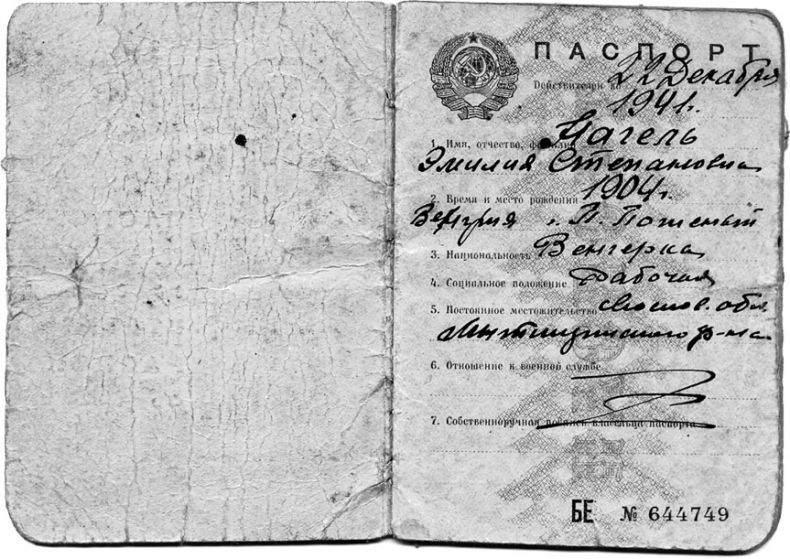 ПАСПОРТ
Действителен по 22 Декабря
1941г.
1. Имя, отчество, Нагель
Эмилия Степановна
2. Время и место рождения 1904г.
Венгрия
3. Национальность Венгерка
4. Социальное положение Рабочая
5. Постоянное местожительство Москов. обл.
Мытищинского р-на
6. Отношение к военной службе
7. Собственноручная подпись владельца паспорта
БЕ № 644749